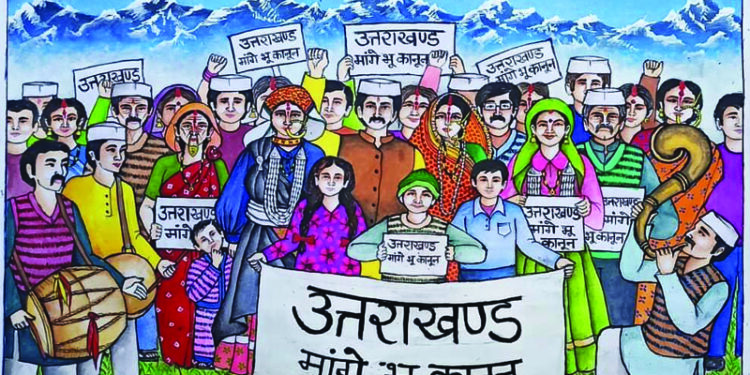 उत्तराखण्ड
मांगे भू कानून
उत्तराखण्ड
मांगे भू कानून
उत्तराखण्ड
मांगे भू कानून
उत्तराखण्ड
उत्तराखण्ड
मांगे
उत्तराखण्ड
मांगे भू कानून
उत्तराखण्ड
मांगे भू
कानून
मांगे
भू कानून
उत्तराखण्ड
मांगे भू कानून